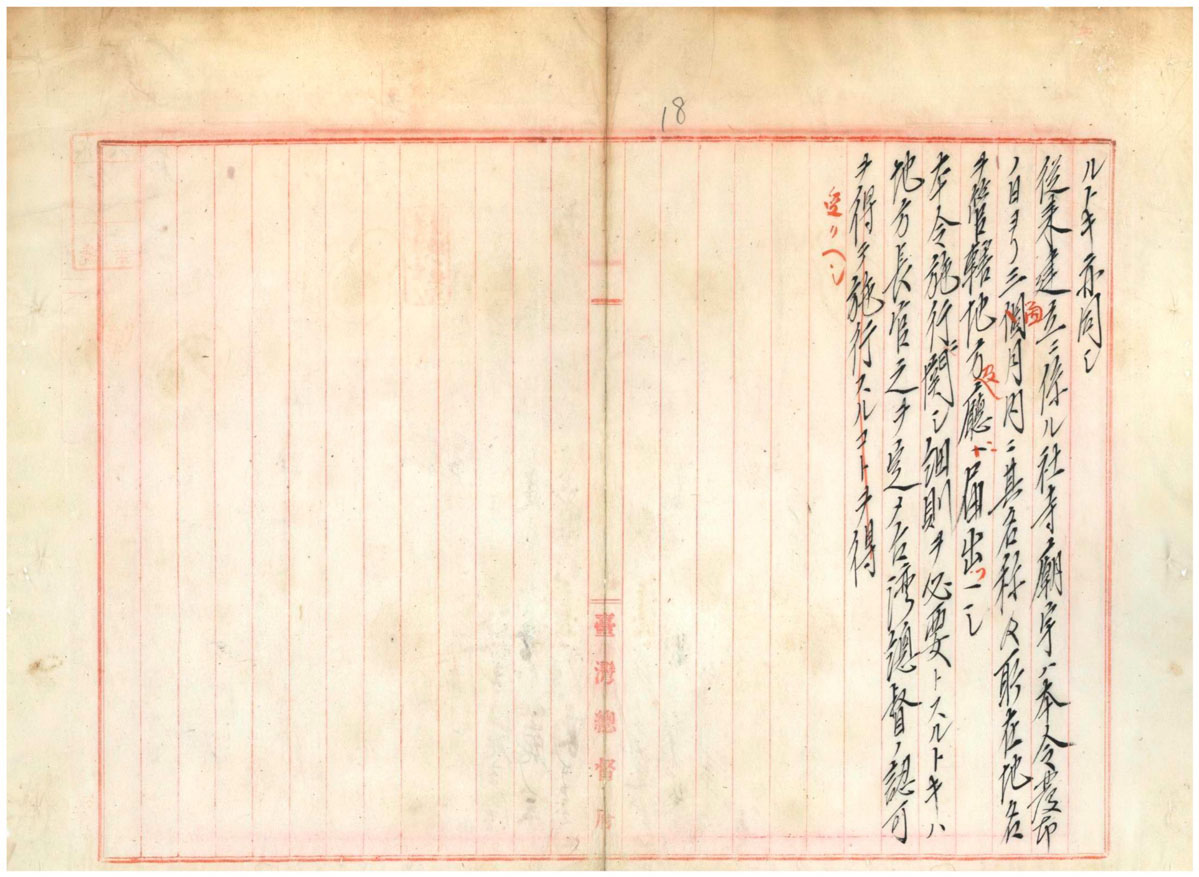 18
ルトキ亦同シ
従来建立ニ係ル社寺廟宇ハ本令発布
ノ日ヨリ三個月内ニ其名称及所在地名
ヲ管轄地方廳ヘ届出ヘシ
本令施行ニ関シ細則ヲ必要トスルトキハ
地方長官之ヲ定メ台湾總督ノ認可
ヲ得テ施行スルコトヲ得
受クヘシ
臺灣總督府